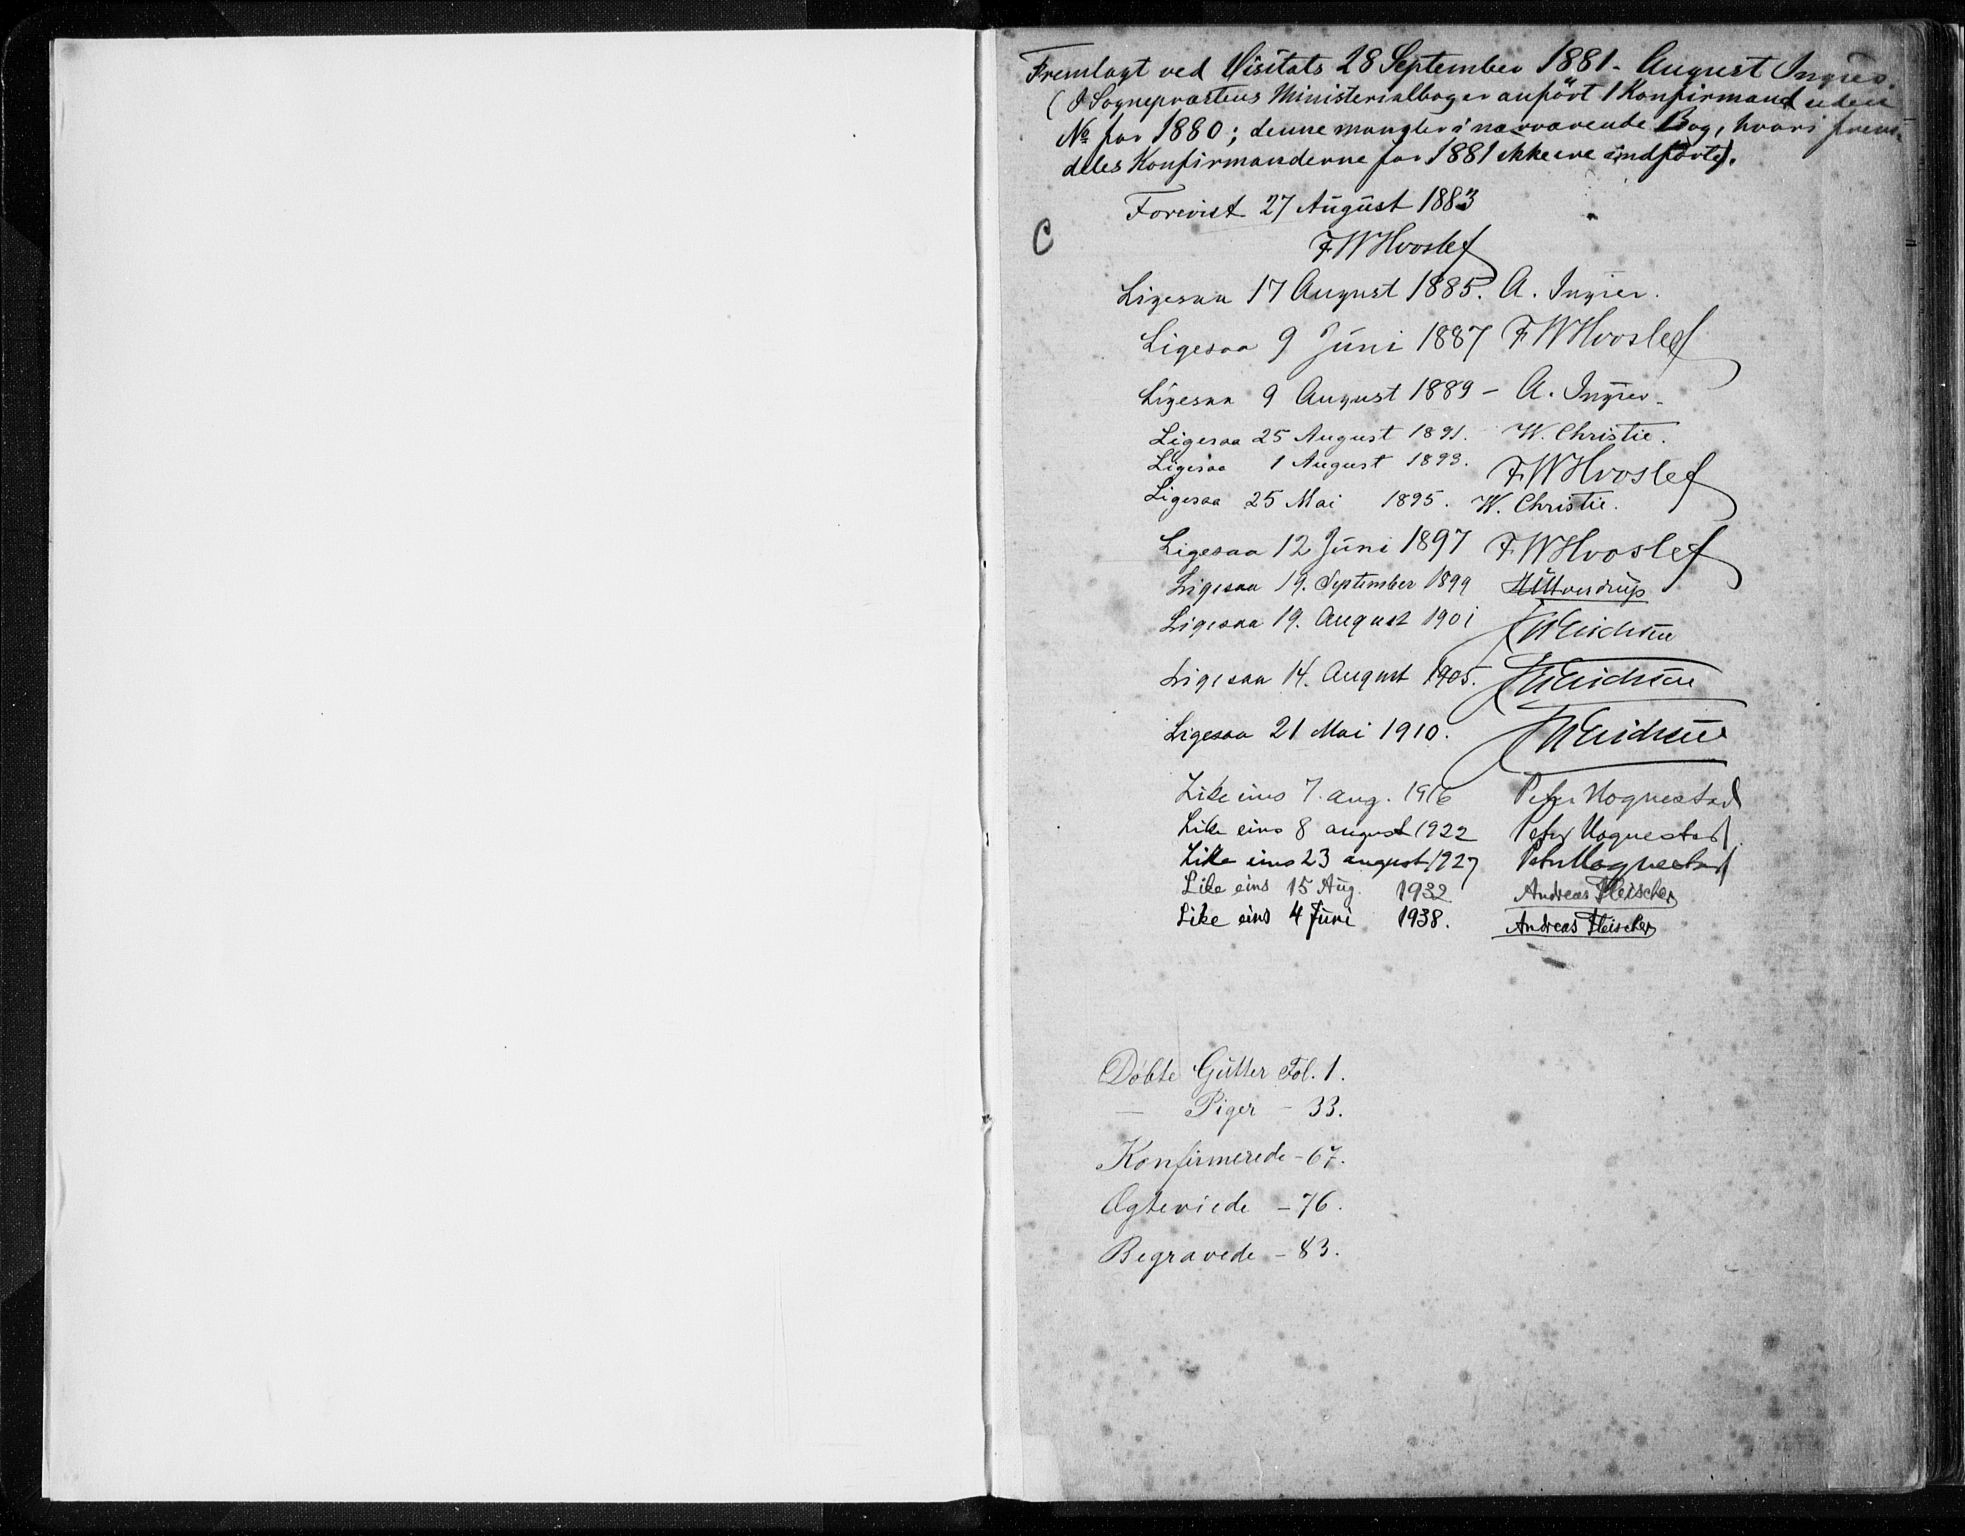 Fremlagt ved Visitats 28 September 1881 - August Ingier.
(I Sognepræstens Ministerialbog er anført 1 Konfirmand uden
No for 1880; denne mangler i nærværende Bog, hvori frem-
deles Konfirmanderne for 1881 ikke ere indførte).
Forevist 27 August 1883
C
FWHvoslef
Ligesaa 17 August 1885. A. Ingier.
Ligesaa 9 Juni 1887 FWHvoslef
Ligesaa 9 August 1889 - A. Ingier.
Ligesaa 25 August 1891. W. Christie.
Ligesaa 1 August 1893. FWHvoslef
Ligesaa 25 Mai 1895. W. Christie.
Ligesaa 12 Juni 1897 FWHvoslef
Ligesaa 19. September 1899
Ligesaa 19. August 1901
Ligesaa 14. August 1905.
Ligesaa 21 Mai 1910.
Like eins 7. aug. 1916 Peter Hognestad
Like eins 8 august 1922 Peter Hognestad
Like eins 23 august 1927 Peter Hognestad
Like eins 15 Aug. 1932 Andreas Fleischer
Like eins 4 Juni 1938. Andreas Fleischer
Døbte Gutter Fol. 1.
— Piger - 33.
Konfirmerede - 67.
Ægteviede - 76.
Begravede - 83.